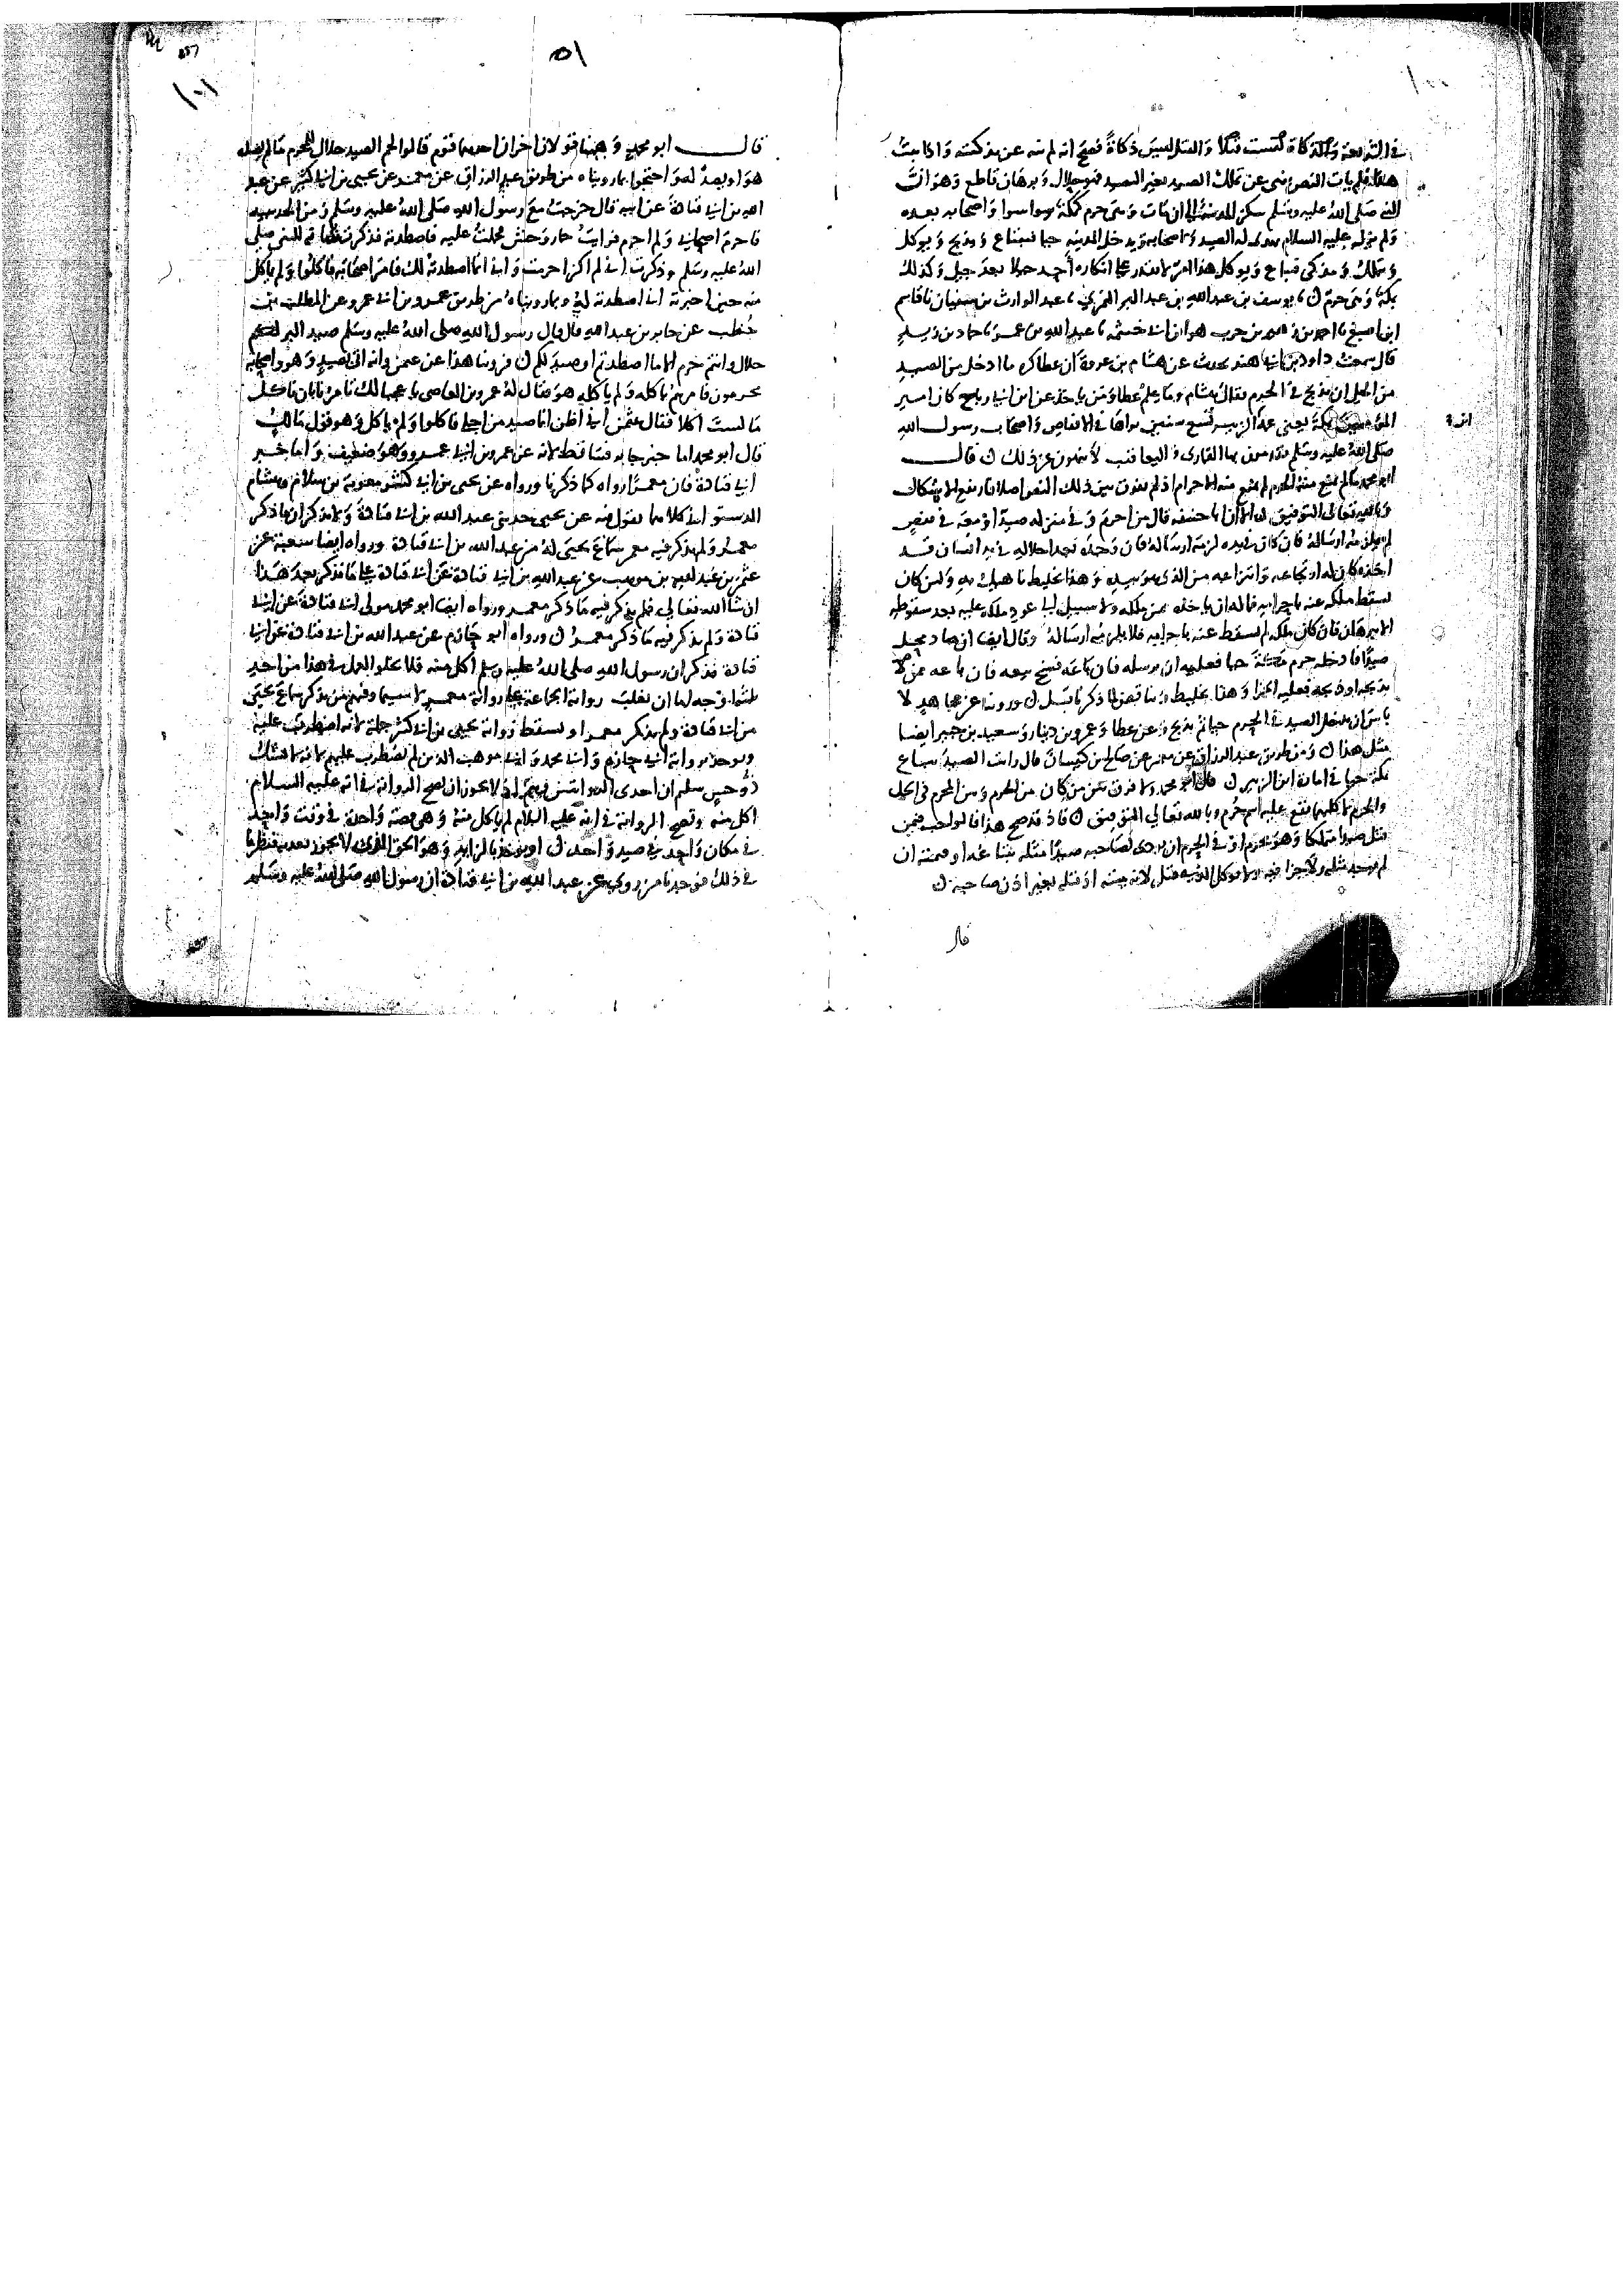 في الشريعة والذكاة ليست قتلا والقتل ليس ذكاة فصح انه لم ينه عن تذكيته واذا ثبت
هذا فلم يات النص نهى عن تملك الصيد بغير التصيد فهو حلال وبرهان قاطع وهو ان
النبي صلى الله عليه وسلم سكن المدينة الى ان مات وهي حرم كمكة سوا سوا واصحابه بعده
ولم يزل عليه السلام يهدى له الصيد ولاصحابه ويدخل المدينة حيا فيبتاع ويذبح ويوكل
ويتملك ومذكى فيباع ويوكل هذا امر لا يقدر على انكاره احد جيلا بعد جيل وكذلك
بمكة وهي حرم ك نا يوسف بن عبد الله بن عبد البر النمري نا عبد الوارث بن سفيان نا قاسم
ابن اصبغ نا احمد بن زهير بن حرب هو ابن ابي خيثمة نا عبد الله بن عمر نا حماد بن زيد
قال سمعت داود بن ابي هند يحدث عن هشام بن عروة ان عطا كره ما ادخل من الصيد
من الحل ان يذبح في الحرم فقال هشام وما علم عطا ومن ياخذ عن ابن ابي رباح كان امير
المؤمنين بمكة يعني عبد الله بن الزبير تسع سنين يراها في الاقفاص واصحاب رسول الله
صلى الله عليه وسلم يقدمون بها القماري واليعاقيب لا ينهون عن ذلك ك قال
ابو محمد ما لم يمنع منه الحرم لم يمنع منه الاحرام اذ لم يفرق بين ذلك النص اصلا فارتفع الاشكال
وبالله تعالى التوفيق الا ان ابا حنيفة قال من احرم وفي منزله صيد او معه في قفص
لم يلزمه ارساله فان كان في يده لزمه ارساله فان وجده بعد احلاله في يد انسان قد
اخذه كان له ارتجاعه وانتزاعه من الذي هو بيده وهذا تخليط ناهيك به ولئن كان
يسقط ملكه عنه باحرامه فما له ان ياخذه من ملكه ولا سبيل الى عود ملكه عليه بعد سقوطه
الا ببرهان فان كان ملكه لم يسقط عنه باحرامه فلا يلزمه ارساله وقال ايضا ان صاد محل
صيدا فادخله حرم مكة حيا فعليه ان يرسله فان باعه فسخ بيعه فان باعه ممن
يذبحه او ذبحه فعليه الجزا وهذا تخليط وتناقض لما ذكرنا قبل ك وروينا عن مجاهد لا
باس ان يدخل الصيد في الحرم حيا ثم يذبح وعن عطا وعمرو بن دينار وسعيد بن جبير ايضا
مثل هذا ك ومن طريق عبد الرزاق عن معمر عن صالح بن كيسان قال رايت الصيد يباع
بمكة حيا في امارة ابن الزبير ك قال ابو محمد ولا فرق بين من كان من المحرم ومن المحرم في الحل
والحرم لان كليهما يقع عليه اسم حرم وبالله تعالى التوفيق ك فاذ قد صح هذا فالواجب فيمن
قتل صيدا متملكا وهو محرم او في الحرم ان يودي لصاحبه صيدا مثله يبتاعه او قيمته ان
لم يوجد مثله ولا جزا فيه ولا يوكل الذي قتل لانه ميتة اذ قتله بغير اذن صاحبه ك
قال
١٠٠
٥١
١٠١
قال ابو محمد وههنا قولان اخران احدهما قوم قالوا لحم الصيد حلال للمحرم ما لم يصده
هو او يصد له واحتجوا بما رويناه من طريق عبد الرزاق عن معمر عن يحيى بن ابي كثير عن عبد
الله بن ابي قتادة عن ابيه قال خرجت مع رسول الله صلى الله عليه وسلم زمن الحديبية
فاحرم اصحابي ولم احرم فرايت حمار وحش فحملت عليه فاصطدته فذكرت شانه للنبي صلى
الله عليه وسلم وذكرت اني لم اكن احرمت واني انما اصطدته لك فامر اصحابه فاكلوا ولم ياكل
منه حين اخبرته اني اصطدته له وبما رويناه من طريق عمرو بن ابي عمرو عن المطلب بن
حنطب عن جابر بن عبد الله قال قال رسول الله صلى الله عليه وسلم صيد البر لكم
حلال وانتم حرم الا ما اصطدتم او صيد لكم ك وروينا هذا عن عثمن وانه اتي بصيد وهو واصحابه
محرمون فامرهم باكله ولم ياكله هو فقال له عمرو بن العاصي يا عجبا لك تامرنا بان ناكل
ما لست اكلا فقال عثمن اني اظن انما صيد من اجلي فاكلوا ولم ياكل وهو قول مالك
قال ابو محمد اما خبر جابر فساقط لانه عن عمرو بن ابي عمرو وهو ضعيف واما خبر
ابي قتادة فان معمرا رواه كما ذكرنا ورواه عن يحيى بن ابي كثير معوية بن سلام وهشام
الدستوائي كلاهما يقول فيه عن يحيى حدثني عبد الله بن ابي قتادة ولا يذكران ما ذكر
معمر ولم يذكر فيه معمر سماع يحيى له من عبد الله بن ابي قتادة ورواه ايضا شعبة عن
عثمن بن عبد الله بن موهب عن عبد الله بن ابي قتادة عن ابي قتادة على ما نذكر بعد هذا
ان شا الله تعالى فلم يذكر فيه ما ذكر معمر ورواه ايضا ابو محمد مولى ابي قتادة عن ابي
قتادة ولم يذكر فيه ما ذكر معمر ك ورواه ابو حازم عن عبد الله بن ابي قتادة عن ابي
قتادة فذكر ان رسول الله صلى الله عليه وسلم اكل منه فلا يخلو العمل في هذا من احد
ثلثة اوجه اما ان تغلب رواية الجماعة على رواية معمر لا سيما وفيهم من يذكر سماع يحيى
من ابن ابي قتادة ولم يذكر معمر او تسقط رواية يحيى بن ابي كثير جملة لانه اضطرب عليه
ويوخذ برواية ابي حازم وابي محمد وابن موهب الذين لم يضطرب عليهم لانه لا يشك
ذو حس سليم ان احدى الروايتين وهم اذ لا يجوز ان تصح الرواية في انه عليه السلام
اكل منه وتصح الرواية في انه عليه السلام لم ياكل منه وهي قصة واحدة في وقت واحد
في مكان واحد في صيد واحد ك او يوخذ بالزايد وهو الحق الذي لا يجوز تعديه فنظرنا
في ذلك فوجدنا من روى عن عبد الله بن ابي قتادة ان رسول الله صلى الله عليه وسلم